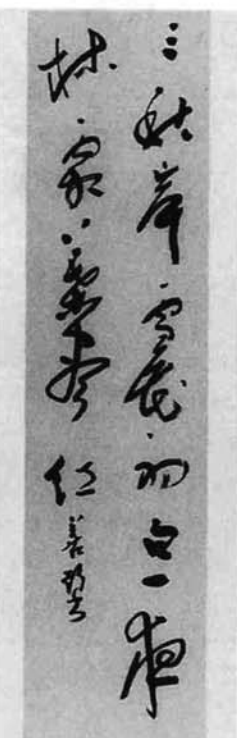 三秋岸雪花初白一夜
林霜葉盡紅